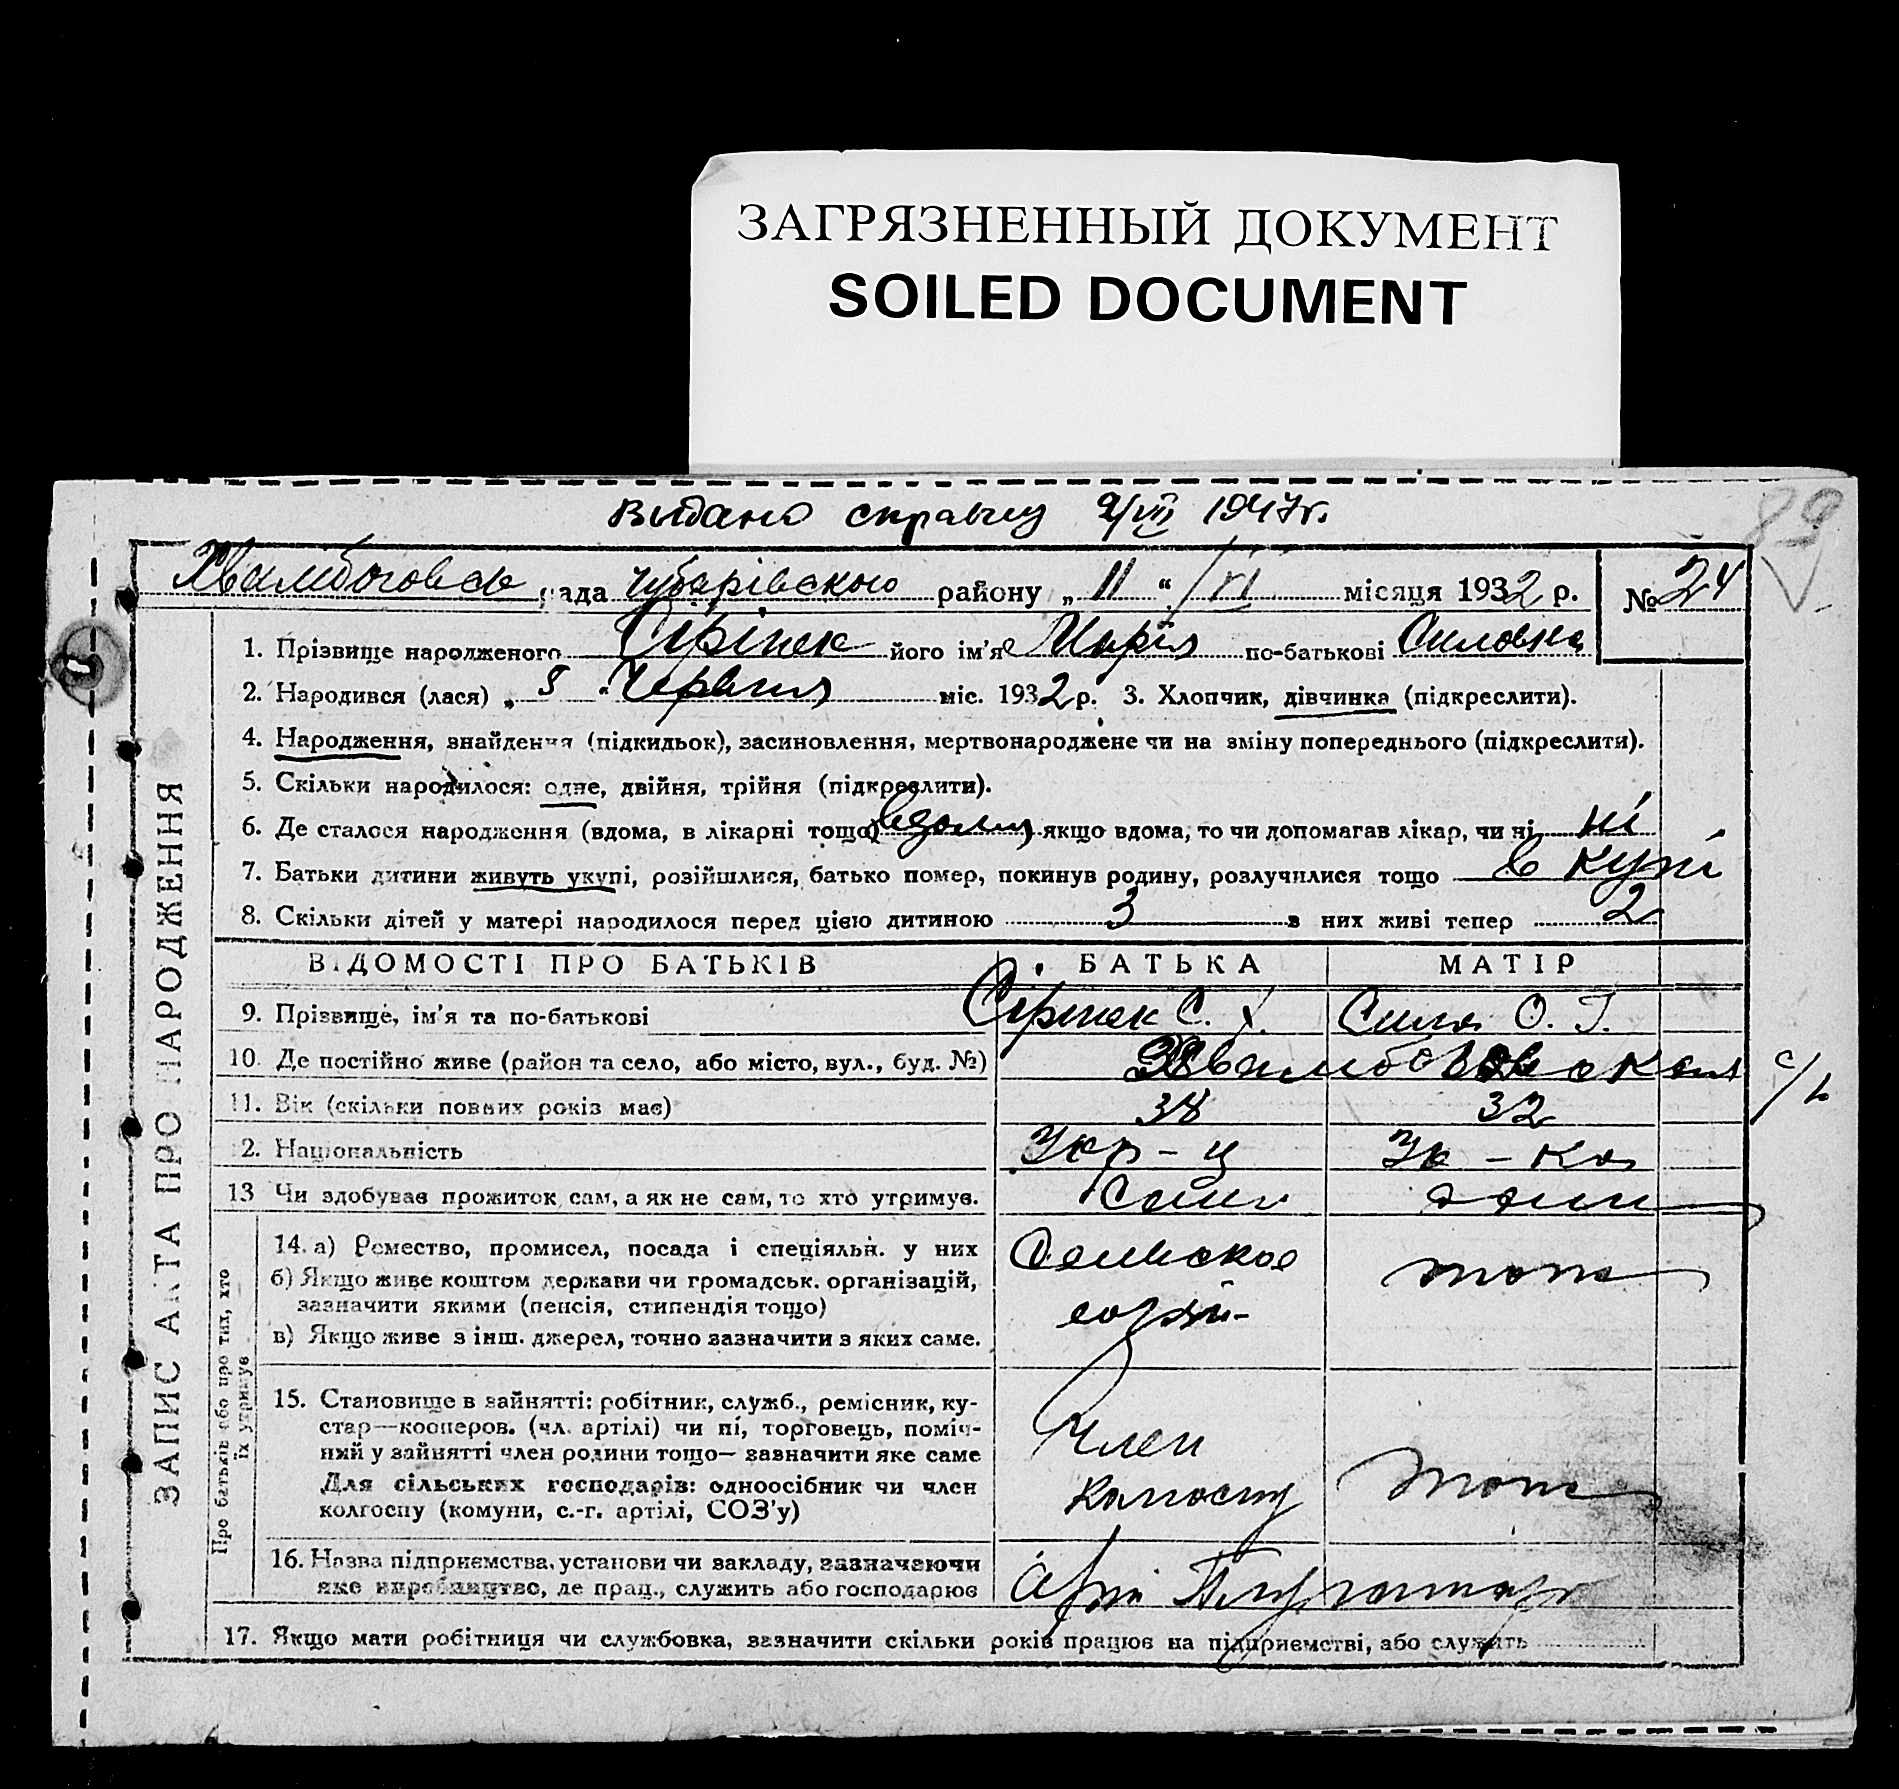 ЗАГРЯЗНЕННЫЙ ДОКУМЕНТ
SOILED DOCUMENT
89
Видано справку 9/VII 1947г.
рада Чубарівского району „11“ VI місяця 1932 р. № 24
1. Прізвище народженого Сірінек його ім'я Марія по-батькові
2. Народився (лася) „5 “ Червня міс. 1932 р. 3. Хлопчик, дівчинка (підкреслити).
4. Народження, знайдення (підкидьок), засиновлення, мертвонароджене чи на зміну попереднього (підкреслити).
5. Скільки народилося: одне, двійня, трійня (підкреслити).
6. Де сталося народження (вдома, в лікарні тощо) вдома якщо вдома, то чи допомагав лікар, чи ні ні
7. Батьки дитини живуть укупі, розійшлися, батько помер, покинув родину, розлучилися тощо в купі
8. Скільки дітей у матері народилося перед цією дитиною 3 з них живі тепер 2
ЗАПИС АКТА ПРО НАРОДЖЕННЯ
ВІДОМОСТІ ПРО БАТЬКІВ БАТЬКА МАТІР
9. Прізвище, ім'я та по-батькові Сірінек С. Х. О. Г.
10. Де постійно живе (район та село, або місто, вул., буд. №) с/р
11. Вік (скільки повних років має) 38 32
12. Національність Укр-ц Ук-ка
13 Чи здобував прожиток сам, а як не сам, то хто утримув. Сам
Про батьків або про тих, хто їх утримує
14. а) Ремество, промисел, посада і спеціяльн. у них Сельское
б) Якщо живе коштом держави чи громадськ. організацій, тоже
зазначити якими (пенсія, стипендія тощо)
в) Якщо живе з інш. джерел, точно зазначити з яких саме.
15. Становище в зайнятті: робітник, служб., ремісник, ку-
стар—кооперов. (чл. артілі) чи ні, торговець, поміч-
ний у зайнятті член родини тощо— зазначити яке саме Член
Для сільських господарів: одноосібник чи член колгоспу тоже
колгоспу (комуни, с.-г. артілі, СОЗ'у)
16. Назва підприємства, установи чи закладу, зазначаючи
яке виробництво, де прац., служить або господарює
17. Якщо мати робітниця чи службовка, зазначити скільки років працює на підприємстві, або служить